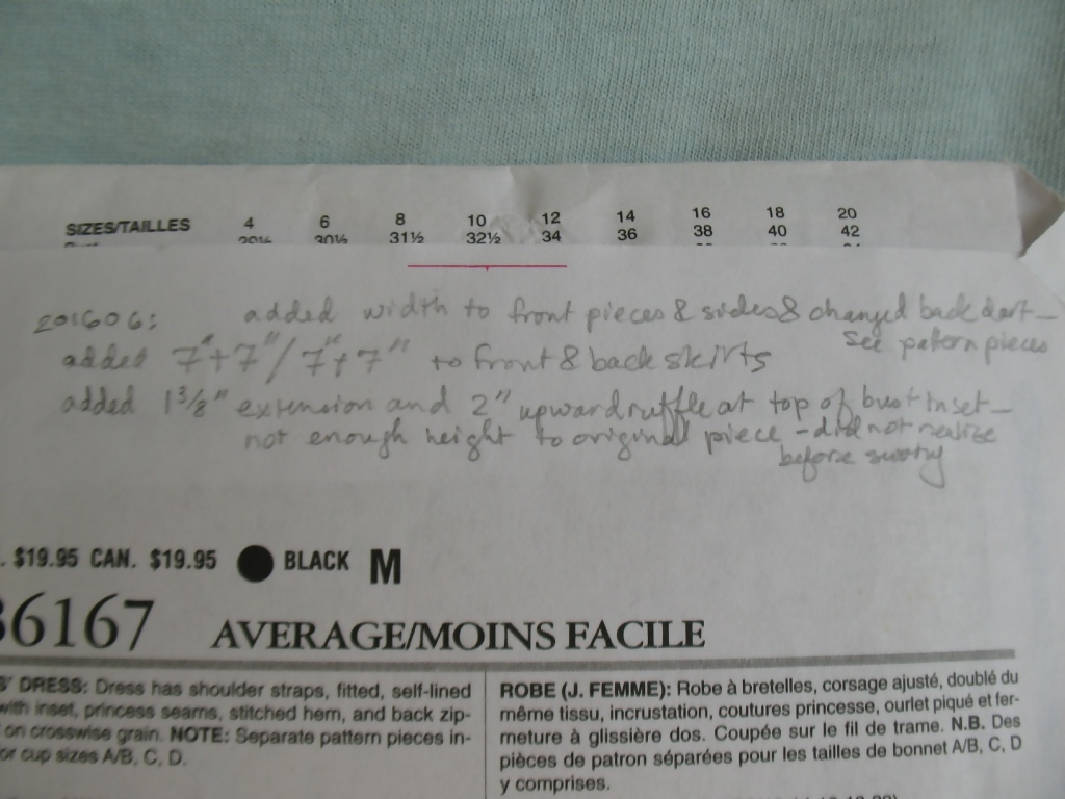 SIZES/TAILLES 4 6 8 10 12 14 16 18 20
30½ 31½ 32½ 34 36 38 40 42
201606: added width to front pieces & sides & changed back dart –
see patern pieces
added 7"+7"/7"+7" to front & back skirts
added 1 3/8" extension and 2" upward ruffle at top of bust inset –
not enough height to original piece – did not realize
before
. $19.95 CAN. $19.95 BLACK M
6167 AVERAGE/MOINS FACILE
S' DRESS: Dress has shoulder straps, fitted, self-lined
with inset, princess seams, stitched hem, and back zip-
on crosswise grain. NOTE: Separate pattern pieces in-
or cup sizes A/B, C, D.
ROBE (J. FEMME): Robe à bretelles, corsage ajusté, doublé du
même tissu, incrustation, coutures princesse, ourlet piqué et fer-
meture à glissière dos. Coupée sur le fil de trame. N.B. Des
pièces de patron séparées pour les tailles de bonnet A/B, C, D
y comprises.